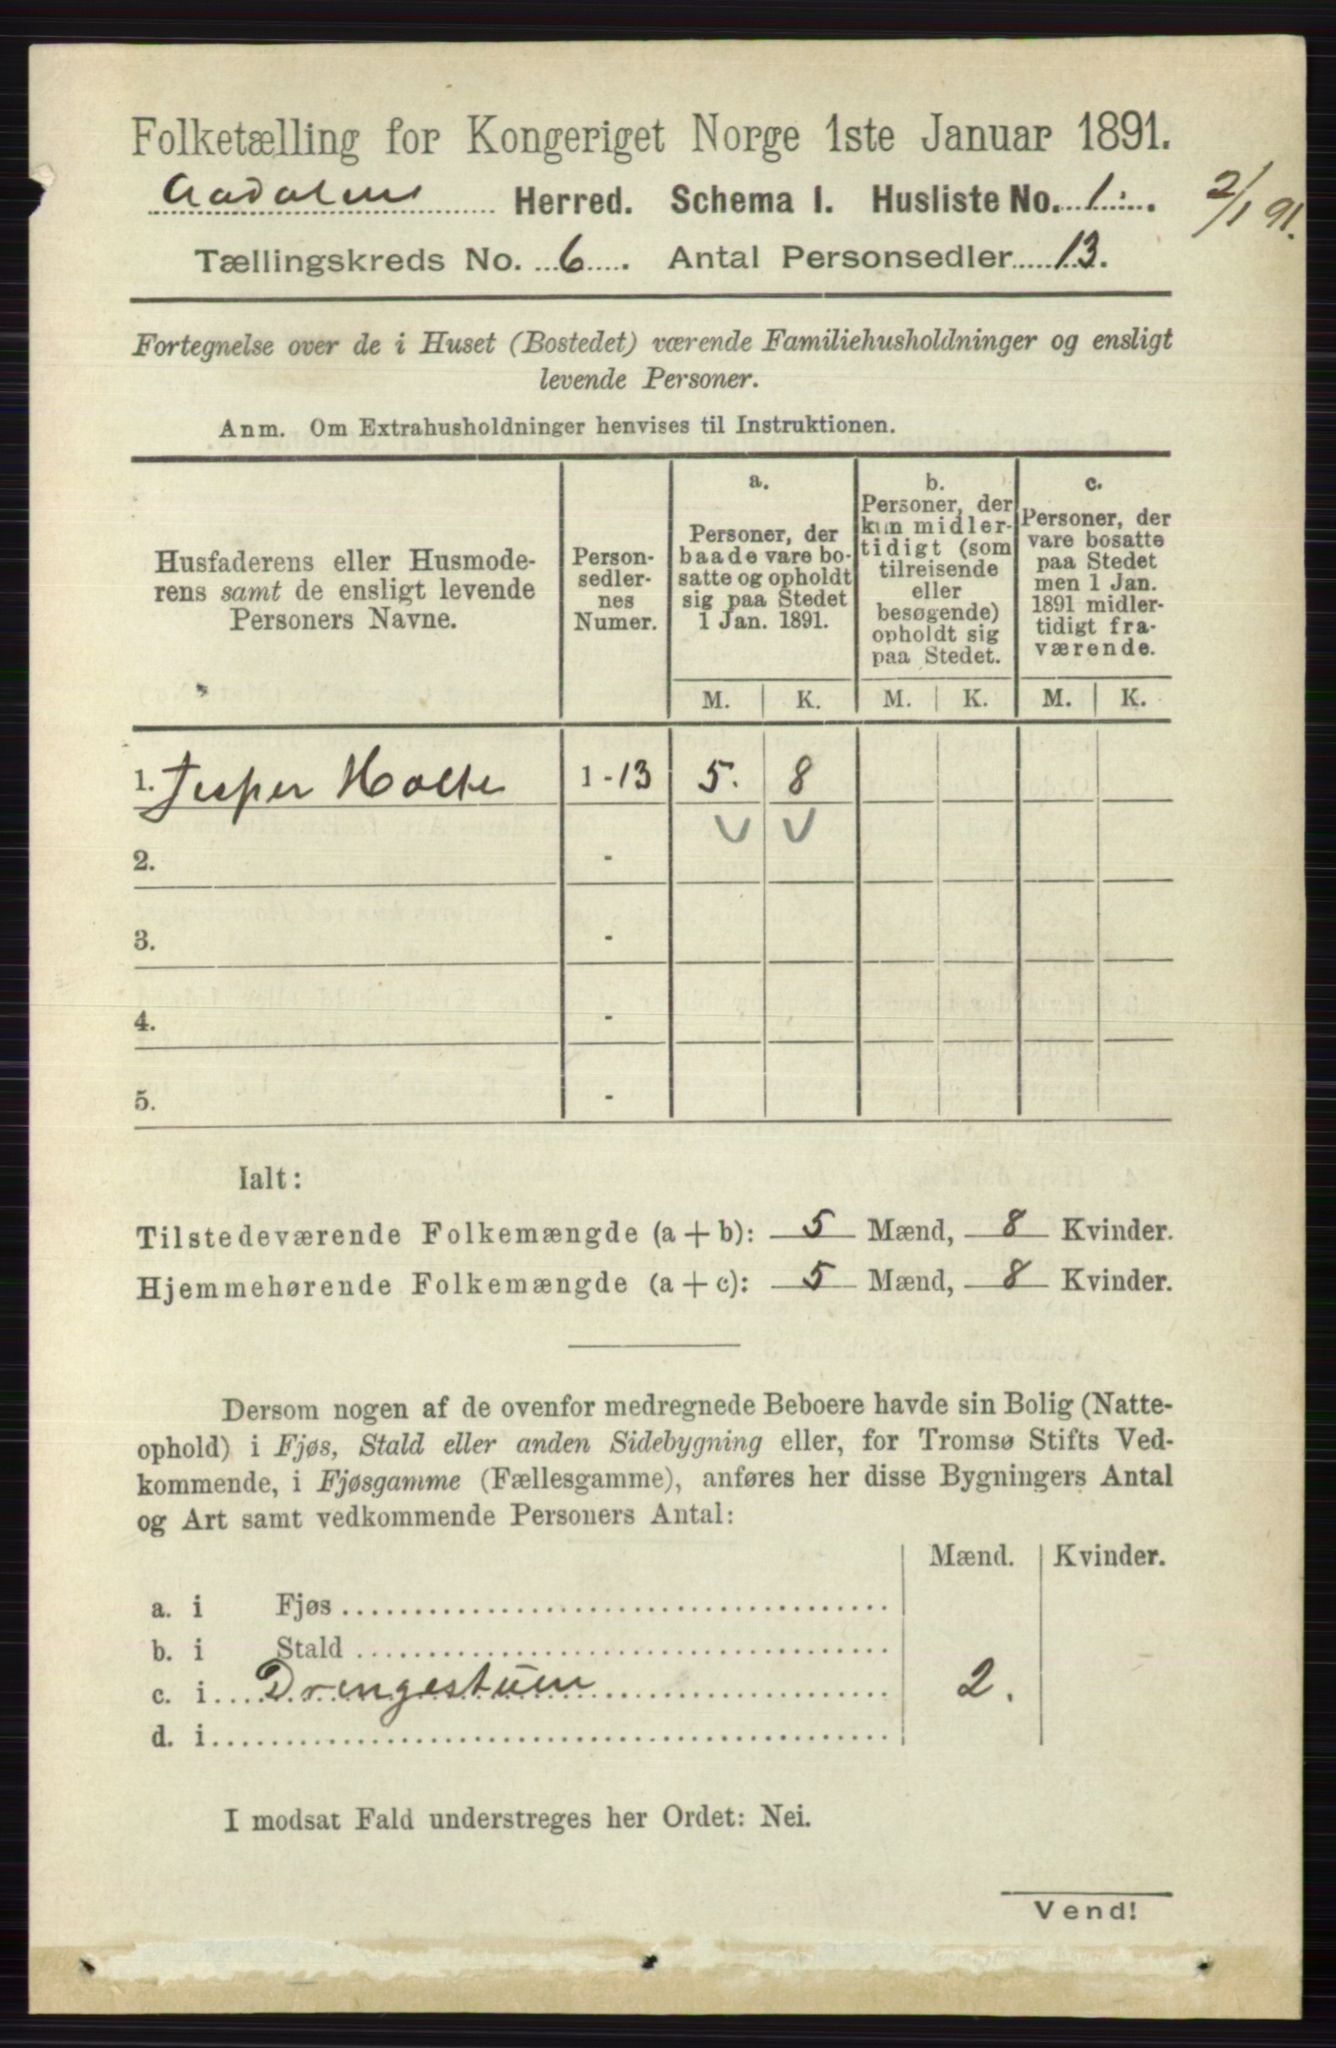 Folketælling for Kongeriget Norge 1ste Januar 1891.
Aadalens Herred. Schema I. Husliste No. 1.
2/1 91.
Tællingskreds No. 6. Antal Personsedler 13.
Fortegnelse over de i Huset (Bostedet) værende Familiehusholdninger og ensligt
levende Personer.
Anm. Om Extrahusholdninger henvises til Instruktionen.
Husfaderens eller Husmode-
rens samt de ensligt levende
Personers Navne.
Person-
sedler-
nes
Numer.
a.
Personer, der
baade vare bo-
satte og opholdt
sig paa Stedet
1 Jan. 1891.
b.
Personer, der
kun midler-
tidigt (som
tilreisende
eller
besøgende)
opholdt sig
paa Stedet.
c.
Personer, der
vare bosatte
paa Stedet
men 1 Jan.
1891 midler-
tidigt fra-
værende.
M. K. M. K. M. K.
1. Jesper Holte 1-13 5. 8
2. -
3. -
4. -
5. -
Ialt:
Tilstedeværende Folkemængde (a + b): 5 Mænd, 8 Kvinder.
Hjemmehørende Folkemængde (a + c): 5 Mænd, 8 Kvinder.
Dersom nogen af de ovenfor medregnede Beboere havde sin Bolig (Natte-
ophold) i Fjøs, Stald eller anden Sidebygning eller, for Tromsø Stifts Ved-
kommende, i Fjøsgamme (Fællesgamme), anføres her disse Bygningers Antal
og Art samt vedkommende Personers Antal:
Mænd. Kvinder.
a. i Fjøs
b. i Stald
c. i Drengestuen 2.
d. i
I modsat Fald understreges her Ordet: Nei.
Vend!